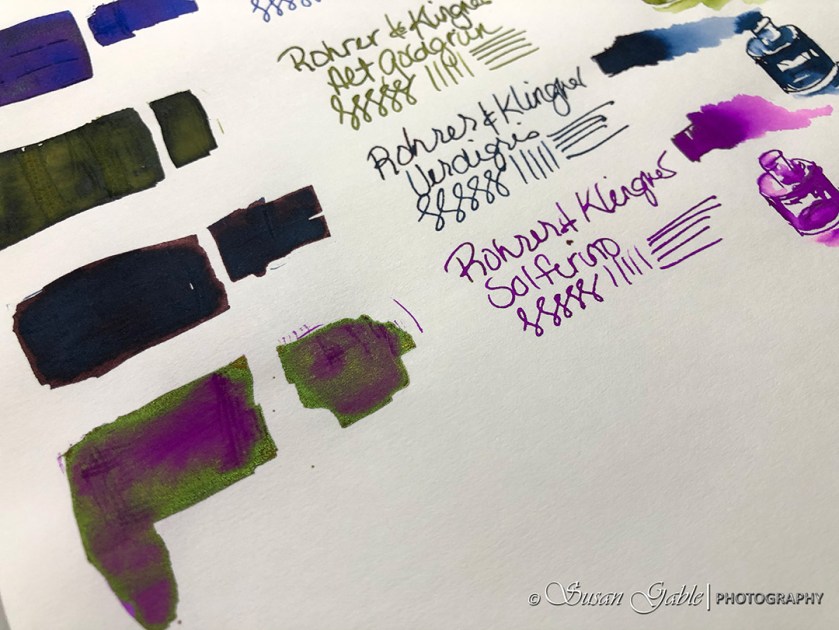 Rohrer & Klingner
Alt Goldgrün
Rohrer & Klingner
Verdigris
Rohrer & Klingner
Solferino
© Susan Gable | PHOTOGRAPHY